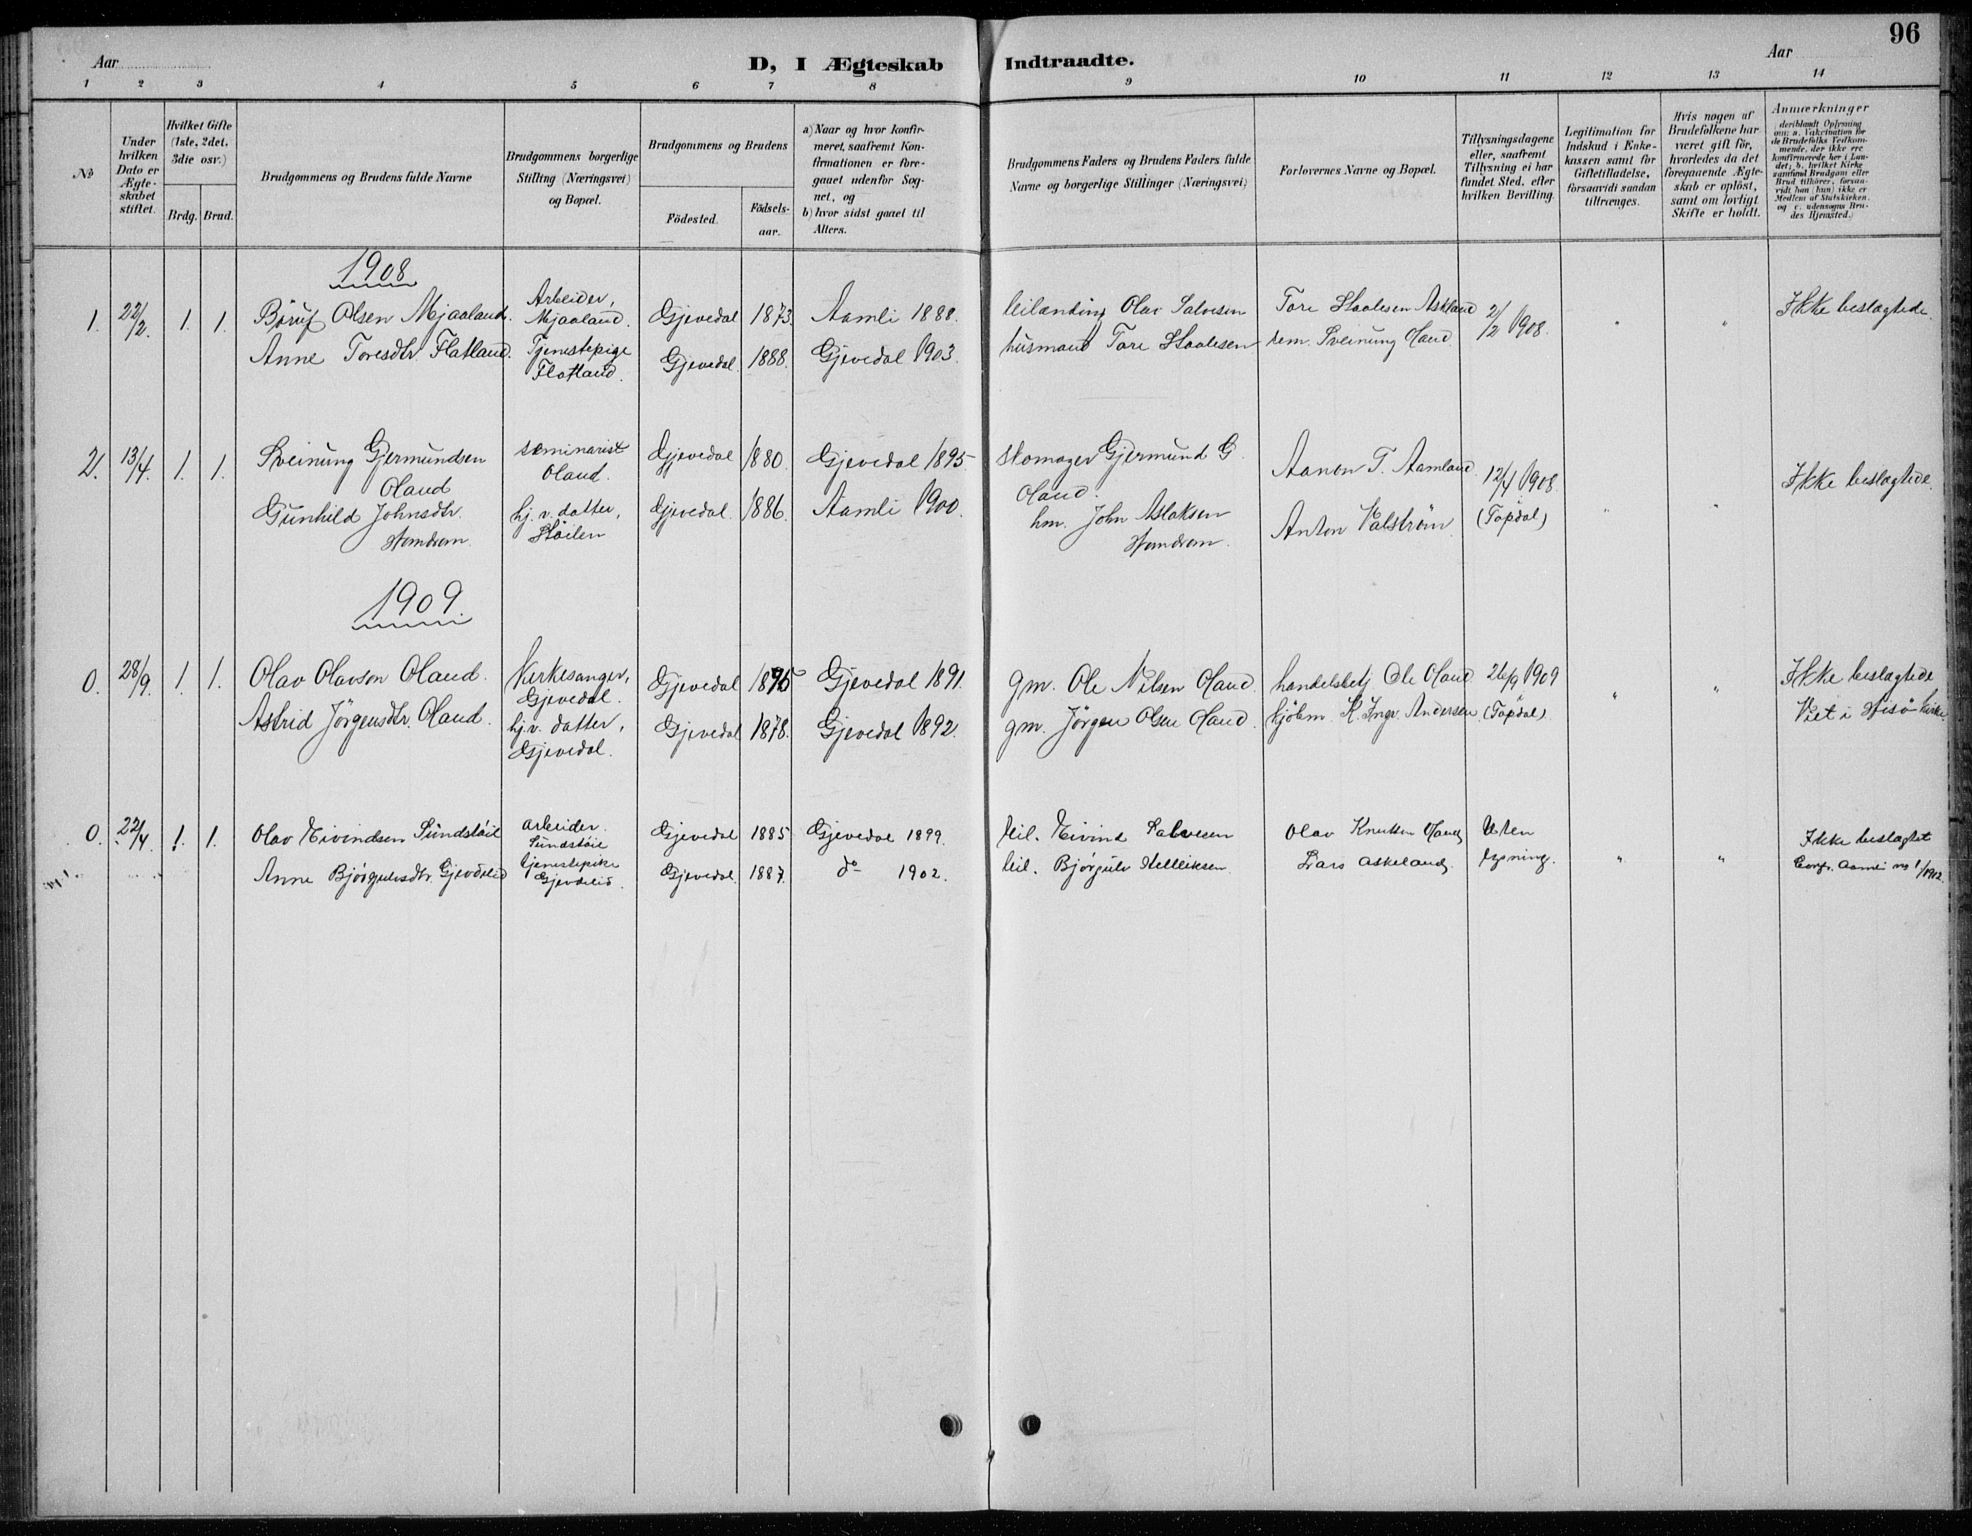 96
Aar
D, I Ægteskab Indtraadte.
Aar
1 2 3 4 5 6 7 8 9 10 11 12 13 14
№
Under hvilken Dato er Ægte-skabet stiftet.
Hvilket Gifte (1ste, 2det, 3die osv.)
Brdg. Brud.
Brudgommens og Brudens fulde Navne
Brudgommens borgerlige Stilling (Næringsvei) og Bopæl.
Brudgommens og Brudens
Födested.
Födsels-aar.
a) Naar og hvor konfir-meret, saafremt Kon-firmationen er fore-gaaet udenfor Sog-net, og
b) hvor sidst gaaet til Alters.
Brudgommens Faders og Brudens Faders fulde Navne og borgerlige Stillinger (Næringsvei)
Forlovernes Navne og Bopæl.
Tillysningsdagene eller, saafremt Tillysning ei har fundet Sted, efter hvilken Bevilling.
Legitimation for Indskud i Enke-kassen samt for Giftetilladelse, forsaavidt saadan tiltrænges.
Hvis nogen af Brudefolkene har været gift för, hvorledes da det foregaaende Ægte-skab er oplöst, samt om lovligt Skifte er holdt.
Anmærkninger
deriblandt Oplysning om: a. Vakcination for de Brudefolks Vedkom-mende, der ikke ere konfirmerede her i Lan-det; b. hvilket Kirke samfund Brudgom eller Brud tilhører, forsaa-vidt han (hun) ikke er Medlem af Statskirken. og c. udensogns Bru-des Hjemsted.)
1908
1. 22/2. 1. 1. Olsen Mjaaland. Arbeider, Mjaaland. Gjevedal 1873. Aamli 1888. leilænding Olav Salvesen Tore Staalesen Askland 2/2 1908. " " Ikke beslægtede.
Anne Toresdtr. Flatland. Tjenestepige Flatland. Gjevedal. 1888. Gjevedal 1903. husmand Tore Staalesen Sveinung Oland
2. 13/4. 1. 1. Sveinung Gjermundsen Oland seminarist Oland. Gjevedal 1880. Gjevedal 1895. skomager Gjermund G. Oland. Aanon T. Aamland 12/4 1908. (Topdal) " " Ikke beslægtede.
Gunhild Johnsdtr. Homdrom. hj. v. datter, Stöilen Gjevedal. 1886. Aamli 1900. hm. John Aslaksen Homdrom. Anton Valström.
1909.
0. 28/9. 1. 1. Olav Olavson Oland. Kirkesanger, Gjevedal. Gjevedal 1875 Gjevedal 1891. gm. Ole Nilsen Oland. handelsbetj Ole Oland 26/9 1909 (Topdal) " " Ikke beslægtede Viet i Hisö kirke
Astrid Jörgensdtr. Oland. hj. v. datter, Gjevedal. Gjevedal 1878. Gjevedal 1892. gm. Jörgen Olsen Oland. kjöbm. K. Ingv. Andersen
0. 22/4. 1. 1. Olav Eivindsen Sundstöil arbeider. Sundstöil Gjevedal 1885 Gjevedal 1899. leil. Eivind Salvesen Olav Knutsen Oland Uten lysning. " " Ikke beslægtet
Anne Bjørgulvsdtr. Gjevdelid tjenestepike Gjevdelid. Gjevedal. 1887. do 1902. leil. Bjørgulv Kelleiksen Lars Askeland